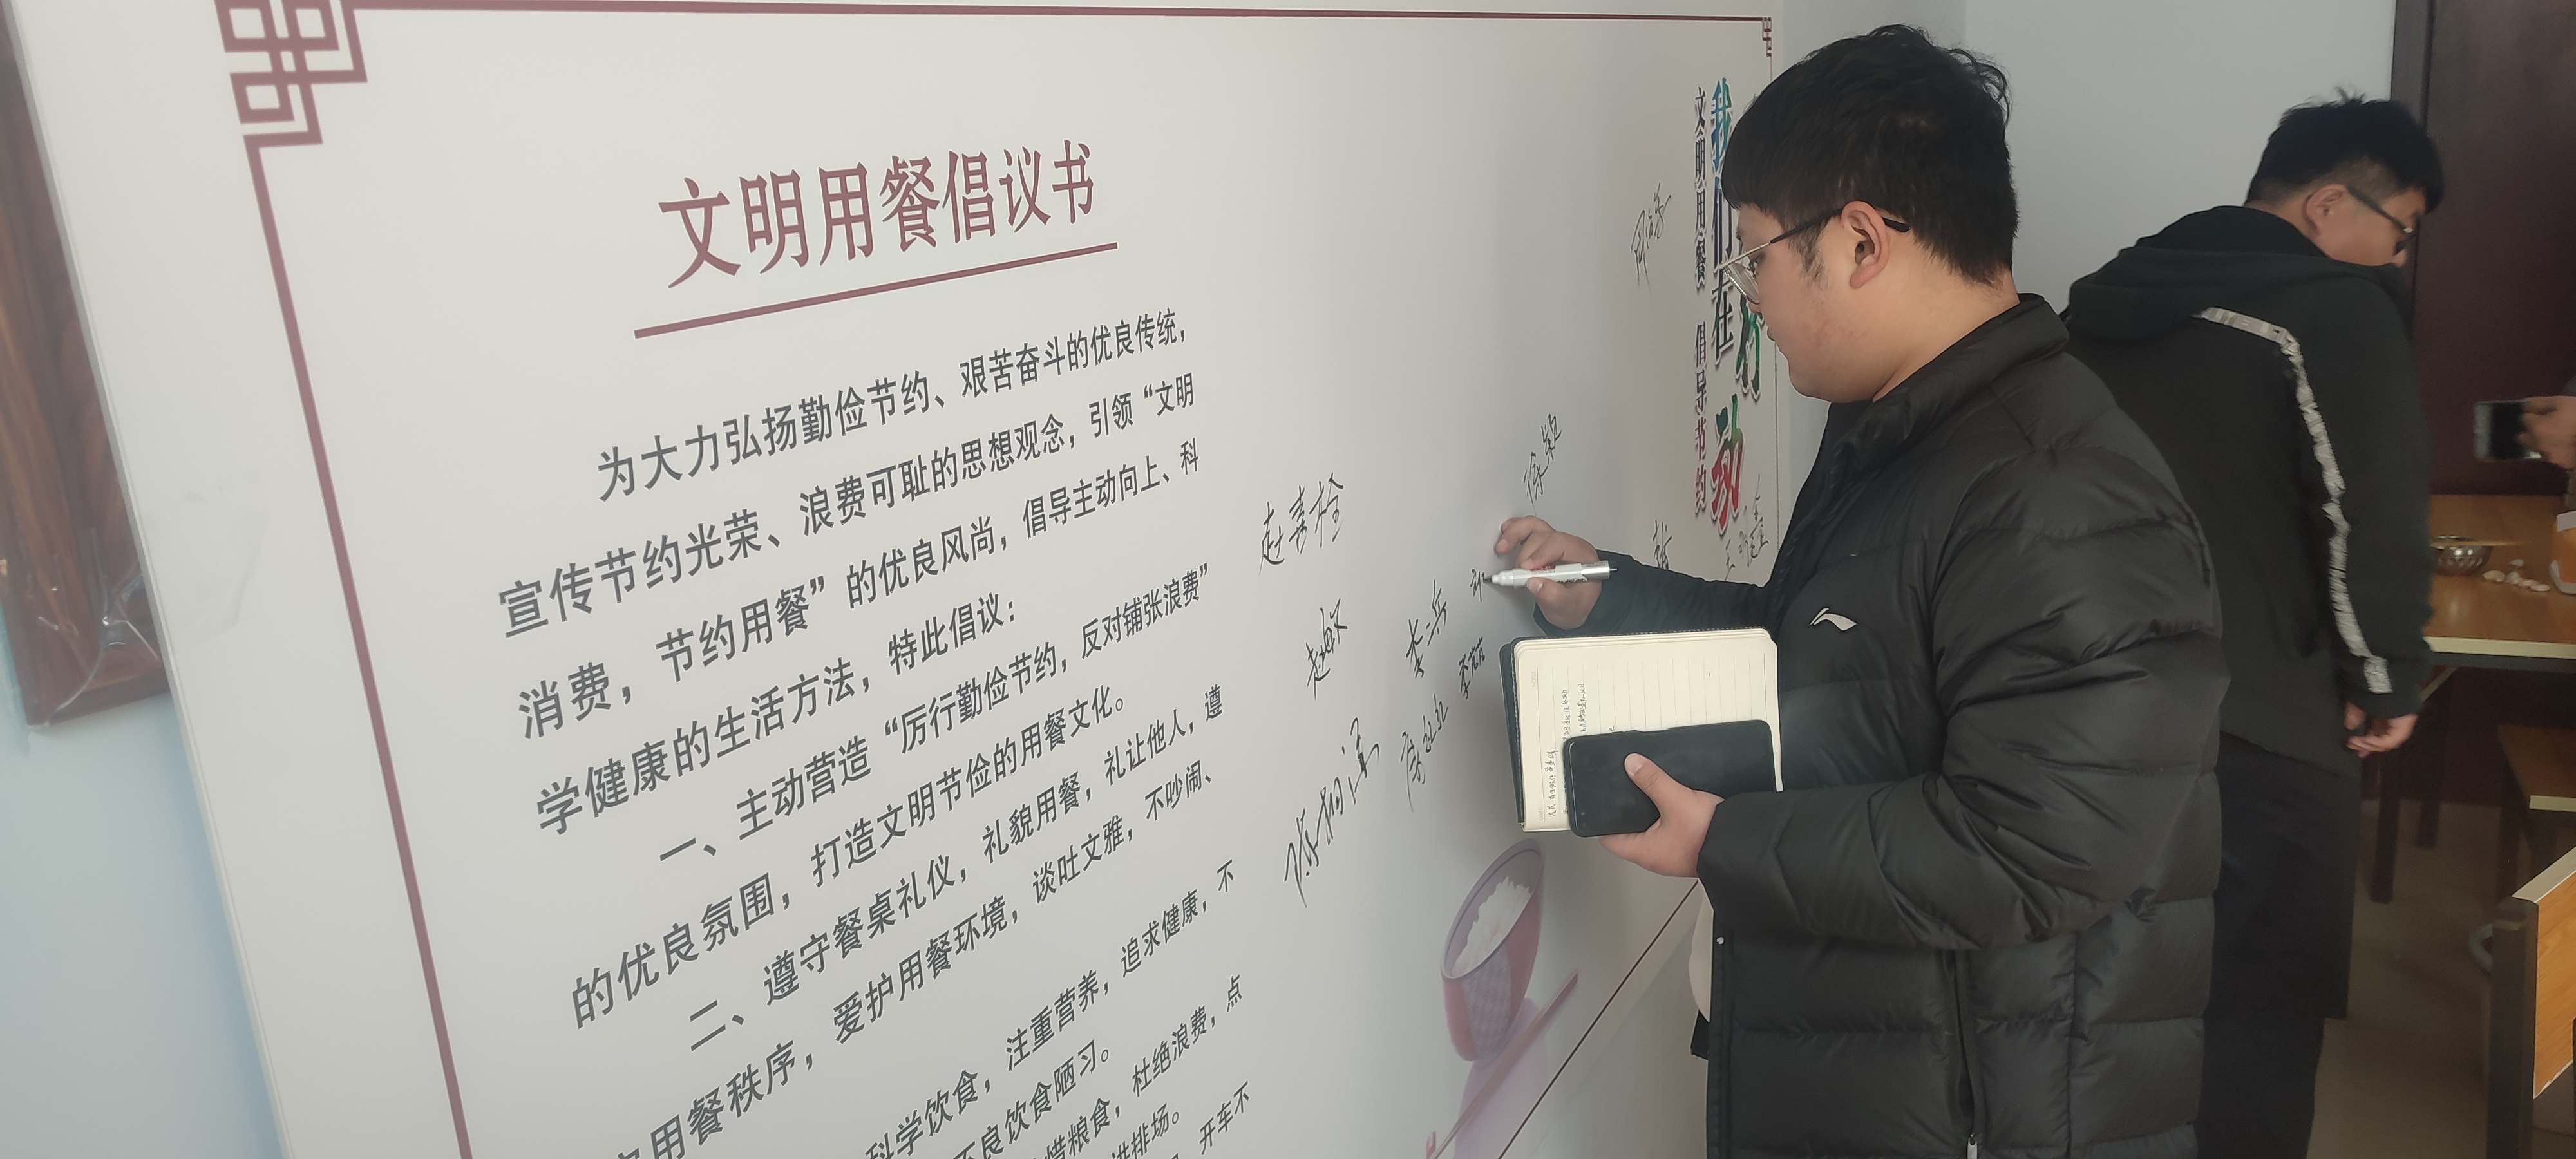 文明用餐倡议书
为大力弘扬勤俭节约、艰苦奋斗的优良传统，
宣传节约光荣、浪费可耻的思想观念，引领“文明
消费，节约用餐”的优良风尚，倡导主动向上、科
学健康的生活方法，特此倡议：
一、主动营造“厉行勤俭节约，反对铺张浪费”
的优良氛围，打造文明节俭的用餐文化。
二、遵守餐桌礼仪，礼貌用餐，礼让他人，遵
用餐秩序，爱护用餐环境，谈吐文雅，不吵闹、
科学饮食，注重营养，追求健康，不
不良饮食陋习。
惜粮食，杜绝浪费，点
讲排场。
开车不
赵喜栓
赵敏
李兵
徐颖
我们在行动
文明用餐 倡导节约